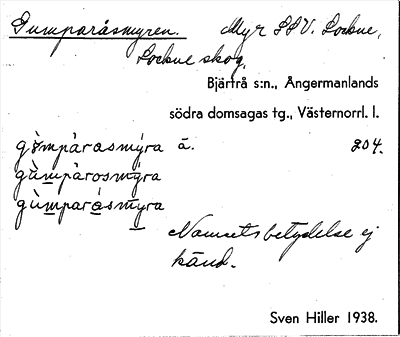 Gumparåsmyren. Myr SSV. Lockne,
Lockne skog.
Bjärtrå s:n., Ångermanlands
södra domsagas tg., Västernorrl. l.
gòmpàrasmýra ā. 204.
gùmpàrosmýra
gùmparásmýra
Namnets betydelse ej
känd.
Sven Hiller 1938.